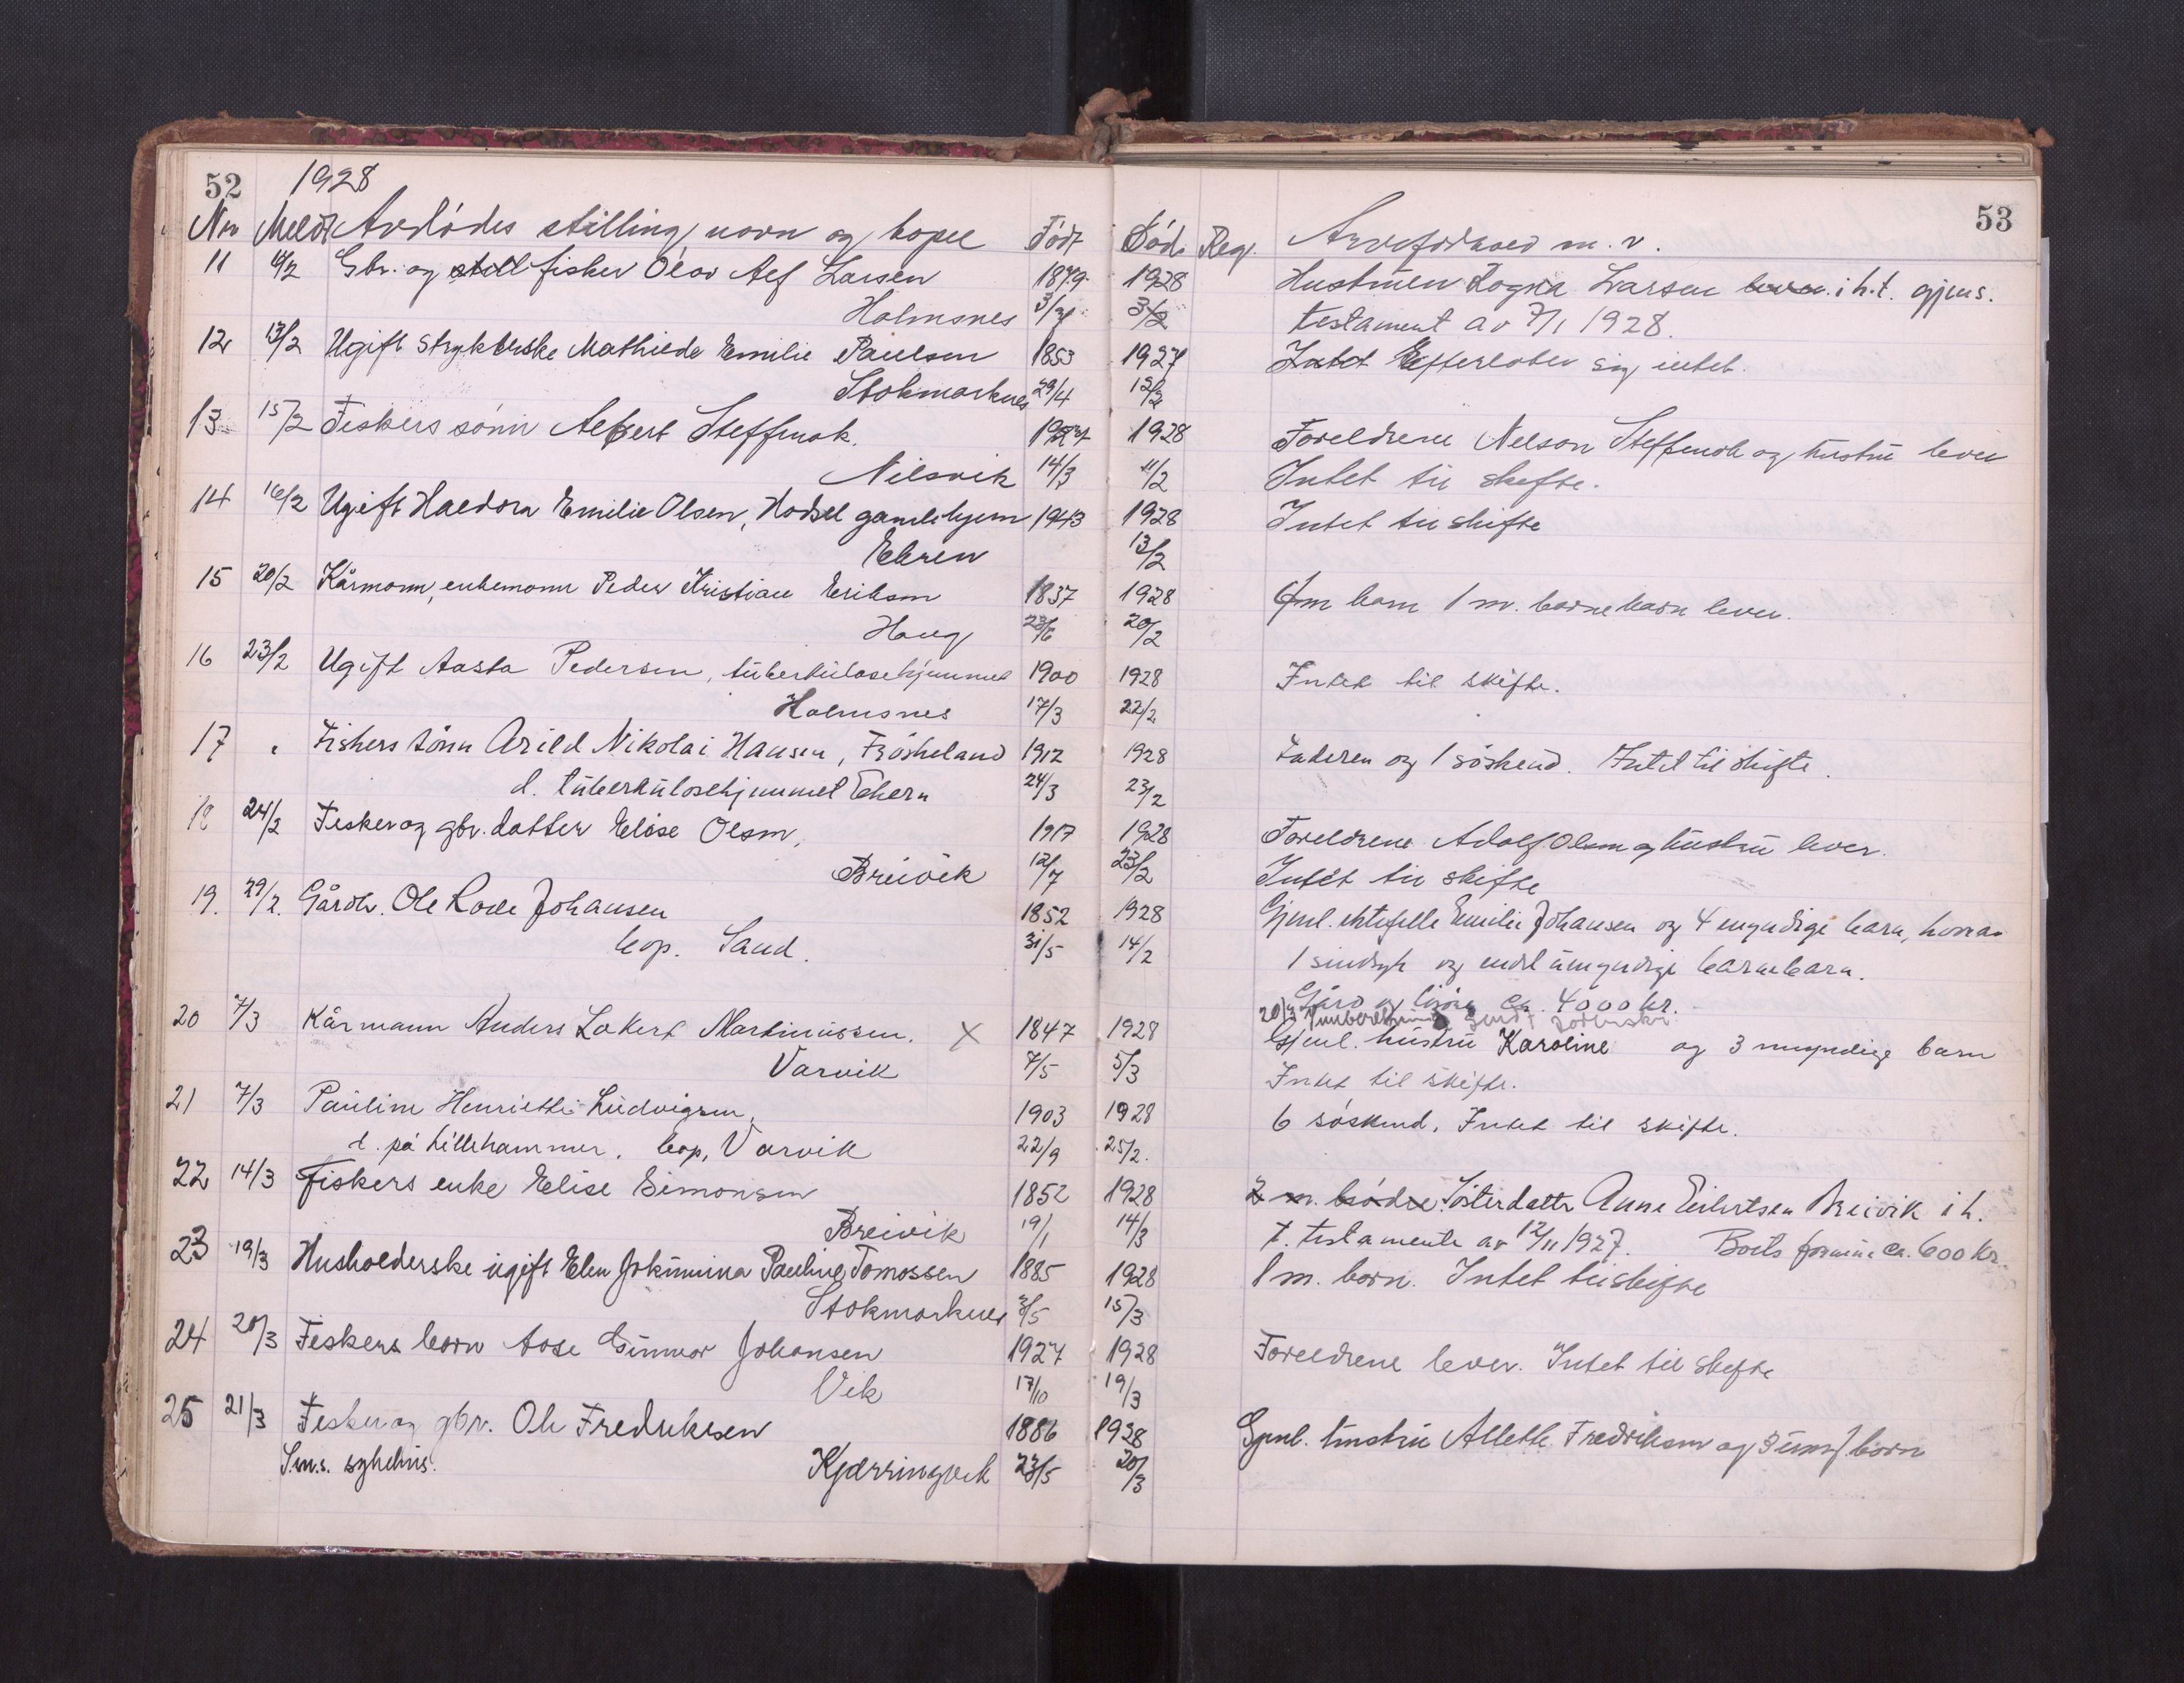 52 1928
53
Nr Meldt Avdødes stilling, navn og bopel Født Død Reg. Arveforhold m. v.
11 6/2 Gbr. og fisker Olav Alf Larsen 1879 1928 Hustruen Ragna Larsen lever i h.t. gjens.
Holmsnes 3/2 testament av 7/1 1928.
12 13/2 Ugift strykerske Mathilde Emilie Paulsen 1853 1927 Intet Efterlater sig intet.
Stokmarknes 29/4 12/2
13 15/2 Fiskers sønn Albert Steffensk. 1927 1928 Foreldrene Nelson Steffensk og hustru lever
Nilsvik 14/3 11/2 Intet til skifte.
14 16/2 Ugift Haldora Emilie Olsen, Hadsel gamlehjem 1943 1928 Intet til skifte
Ekren 13/2
15 20/2 Kårmann, enkemann Peder Kristian Eriksen 1837 1928 barn 1 m. barnebarn lever.
Haug 23/6 20/2
16 23/2 Ugift Aasta Pedersen, tuberkulosehjemmet 1900 1928 Intet til skifte.
Holmsnes 17/3 22/2
17 " Fiskers sønn Arild Nikolai Hansen, Frøskeland 1912 1928 Faderen og 1 søskend. Intet til skifte.
d. tuberkulosehjemmet Ekern 24/3 23/2
18 24/2 Fisker og gbr. datter Elise Olsen, 1917 1928 Foreldrene Adolf Olsen og hustru lever.
Breivik 12/7 23/2 Intet til skifte
19. 29/2. Gårdbr. Ole Lode Johansen 1852 1928 Gjenl. ektefelle Emilie Johansen og 4 myndige barn, hvorav
bop. Sand. 31/5 14/2 1 sindsyk og endel umyndige barnebarn.
Gård og løsøre ca. 4000 kr.
20/3
20 7/3 Kårmann Anders Lakert Martinussen. X 1847 1928 Gjenl. hustru Karoline og 3 myndige barn
Varvik 7/5 5/3 Intet til skifte.
21 7/3 Pauline Henriette Ludvigsen, 1903 1928 6 søskend. Intet til skifte.
d. på Lillehammer. bop. Varvik 22/9 25/2.
22 14/3 Fiskers enke Elise Simonsen 1852 1928 2 m. brødre Søsterdatter Anne Eilertsen Breivik i h.
Breivik 19/1 14/3 t. testamente av 12/11 1927. Boets formue ca. 600 kr.
23 19/3 Husholderske ugift Elen Jokumina Pauline Tomassen 1885 1928 1 m. barn. Intet til skifte
Stokmarknes 3/5 15/3
24 20/3 Fiskers barn Aase Gunvor Johansen 1927 1928 Foreldrene lever. Intet til skifte
Vik 17/10 19/3
25 21/3 Fisker og gbr. Ole Fredriksen 1886 1928 Gjenl. hustru Allette Fredriksen og 3 umynd barn
S.m.s. sykehus. Kjærringvik 23/5 20/3